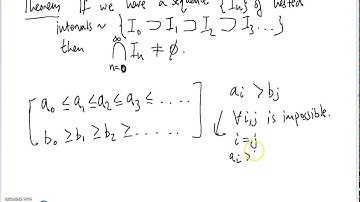 Theorem If we have a sequence {In} of nested
intervals ~ {I₀ ⊃ I₁ ⊃ I₂ ⊃ I₃ ...}
then ∞⋂n=0 In ≠ ∅.
a₀ ≤ a₁ ≤ a₂ ≤ a₃ ≤ .....
b₀ ≥ b₁ ≥ b₂ ≥ ......
ai > bj
∀i,j is impossible.
i = j
ai >